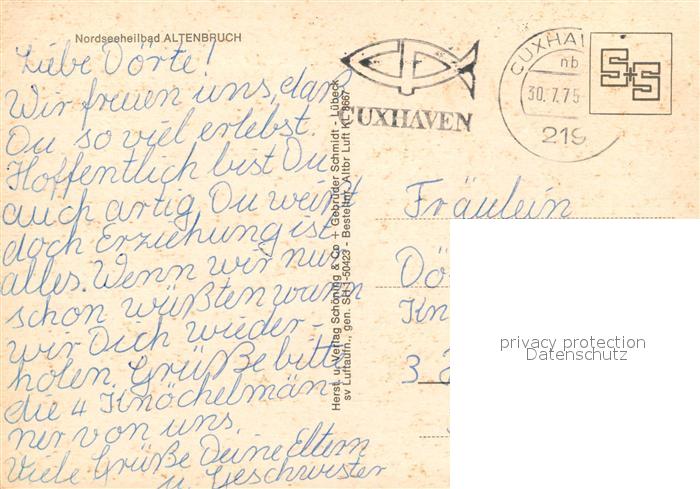 Nordseeheilbad ALTENBRUCH
Liebe Dörte!
Wir freuen uns, daß
Du so viel erlebst.
Hoffentlich bist Du
auch artig, Du weißt
doch Erziehung ist
alles. Wenn wir nur
schon wüßten wann
wir Dich wieder-
holen. Grüße bitte
die 4 Knöchelmän-
ner von uns.
Viele Grüße Deine Eltern
u. Geschwister
Herst. u. Verlag Schöning & Co + Gebrüder Schmidt - Lübeck
sv Luftaufn., gen. SH 1-50423 - Bestellnr. Altbr Luft KL 8667
CUXHAVEN
CUXHA
nb
30.7.75
219
S+S
Fräulein
Dö
Kn
3
privacy protection
Datenschutz